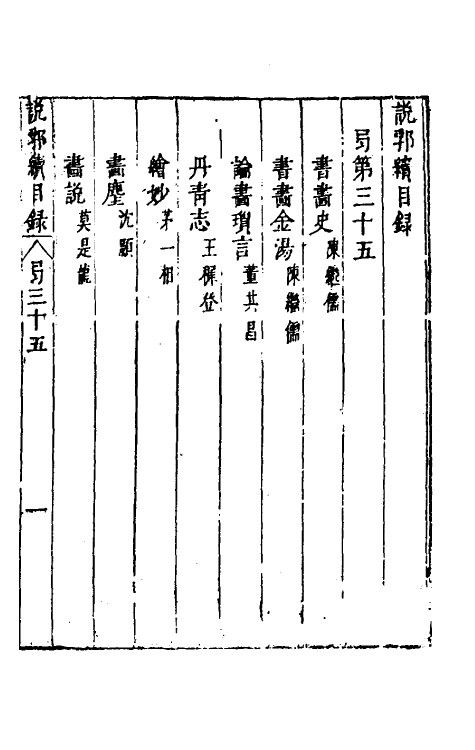 說郛續目録
弓第三十五
書畵史陳繼儒
書畵金湯陳繼儒
論畵瑣言董其昌
丹青志王穉登
繪妙茅一相
畵麈沈顥
畵說莫是龍
說郛續目録 弓三十五 一